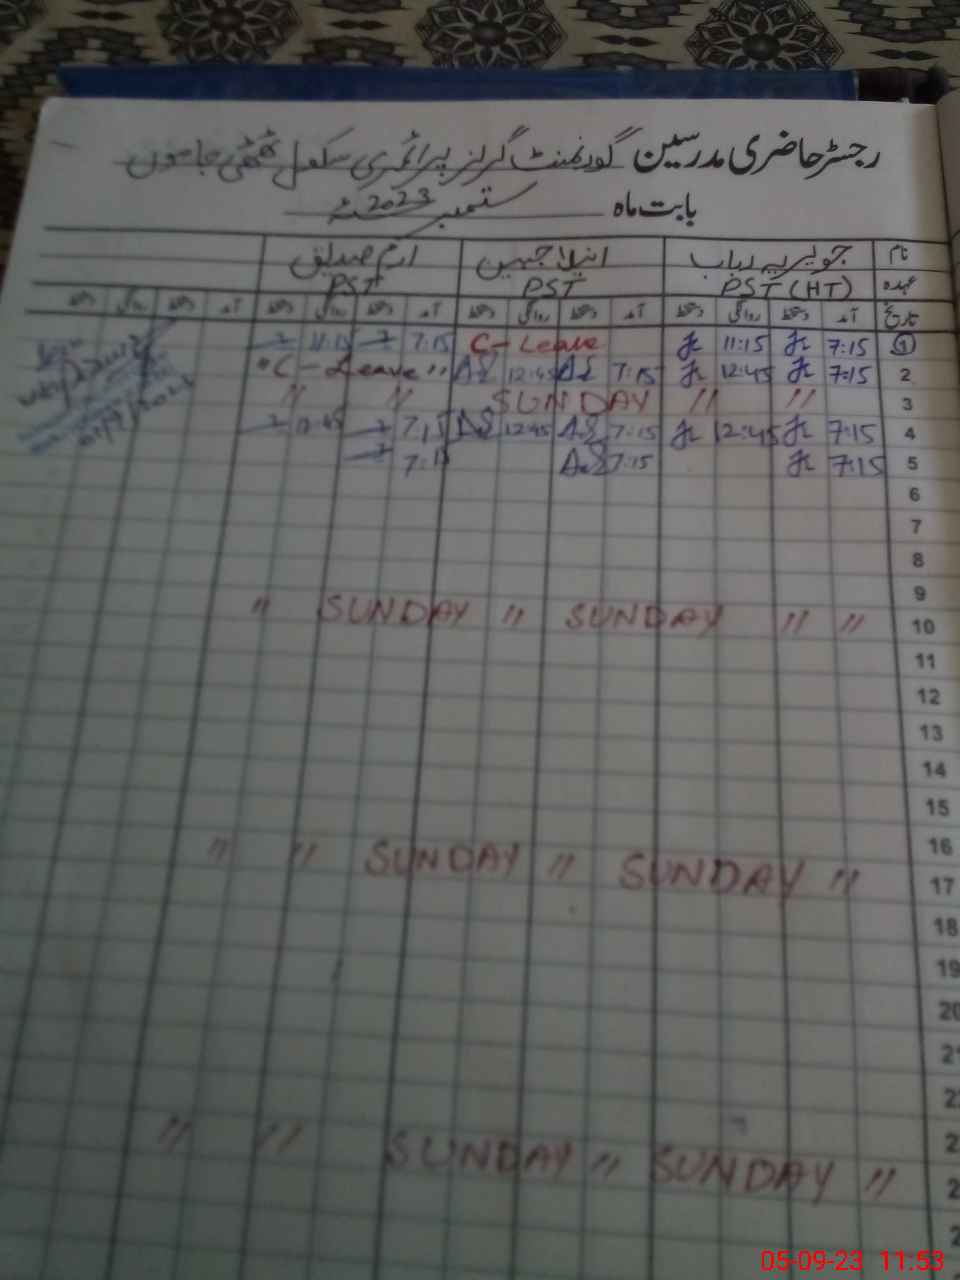 رجسٹر حاضری مدرسین گورنمنٹ گرلز پرائمری سکول
بابت ماہ ستمبر 2023
نام جویریہ رباب انیلا جبیں ارم صدیق
عہدہ PST (HT) PST PST
تاریخ آمد دستخط روانگی دستخط آمد دستخط روانگی دستخط آمد دستخط روانگی دستخط آمد دستخط روانگی دستخط
1 7:15 11:15 C-Leave 7:15 11:15
2 7:15 12:45 7:15 12:45 "C-Leave"
3 " " SUNDAY " "
4 7:15 12:45 7:15 12:45 7:15 12:45
5 7:15 7:15 7:15
6
7
8
9
10 " " SUNDAY " SUNDAY "
11
12
13
14
15
16
17 " SUNDAY " SUNDAY " "
18
19
20
" SUNDAY " SUNDAY " "
05-09-23 11:53